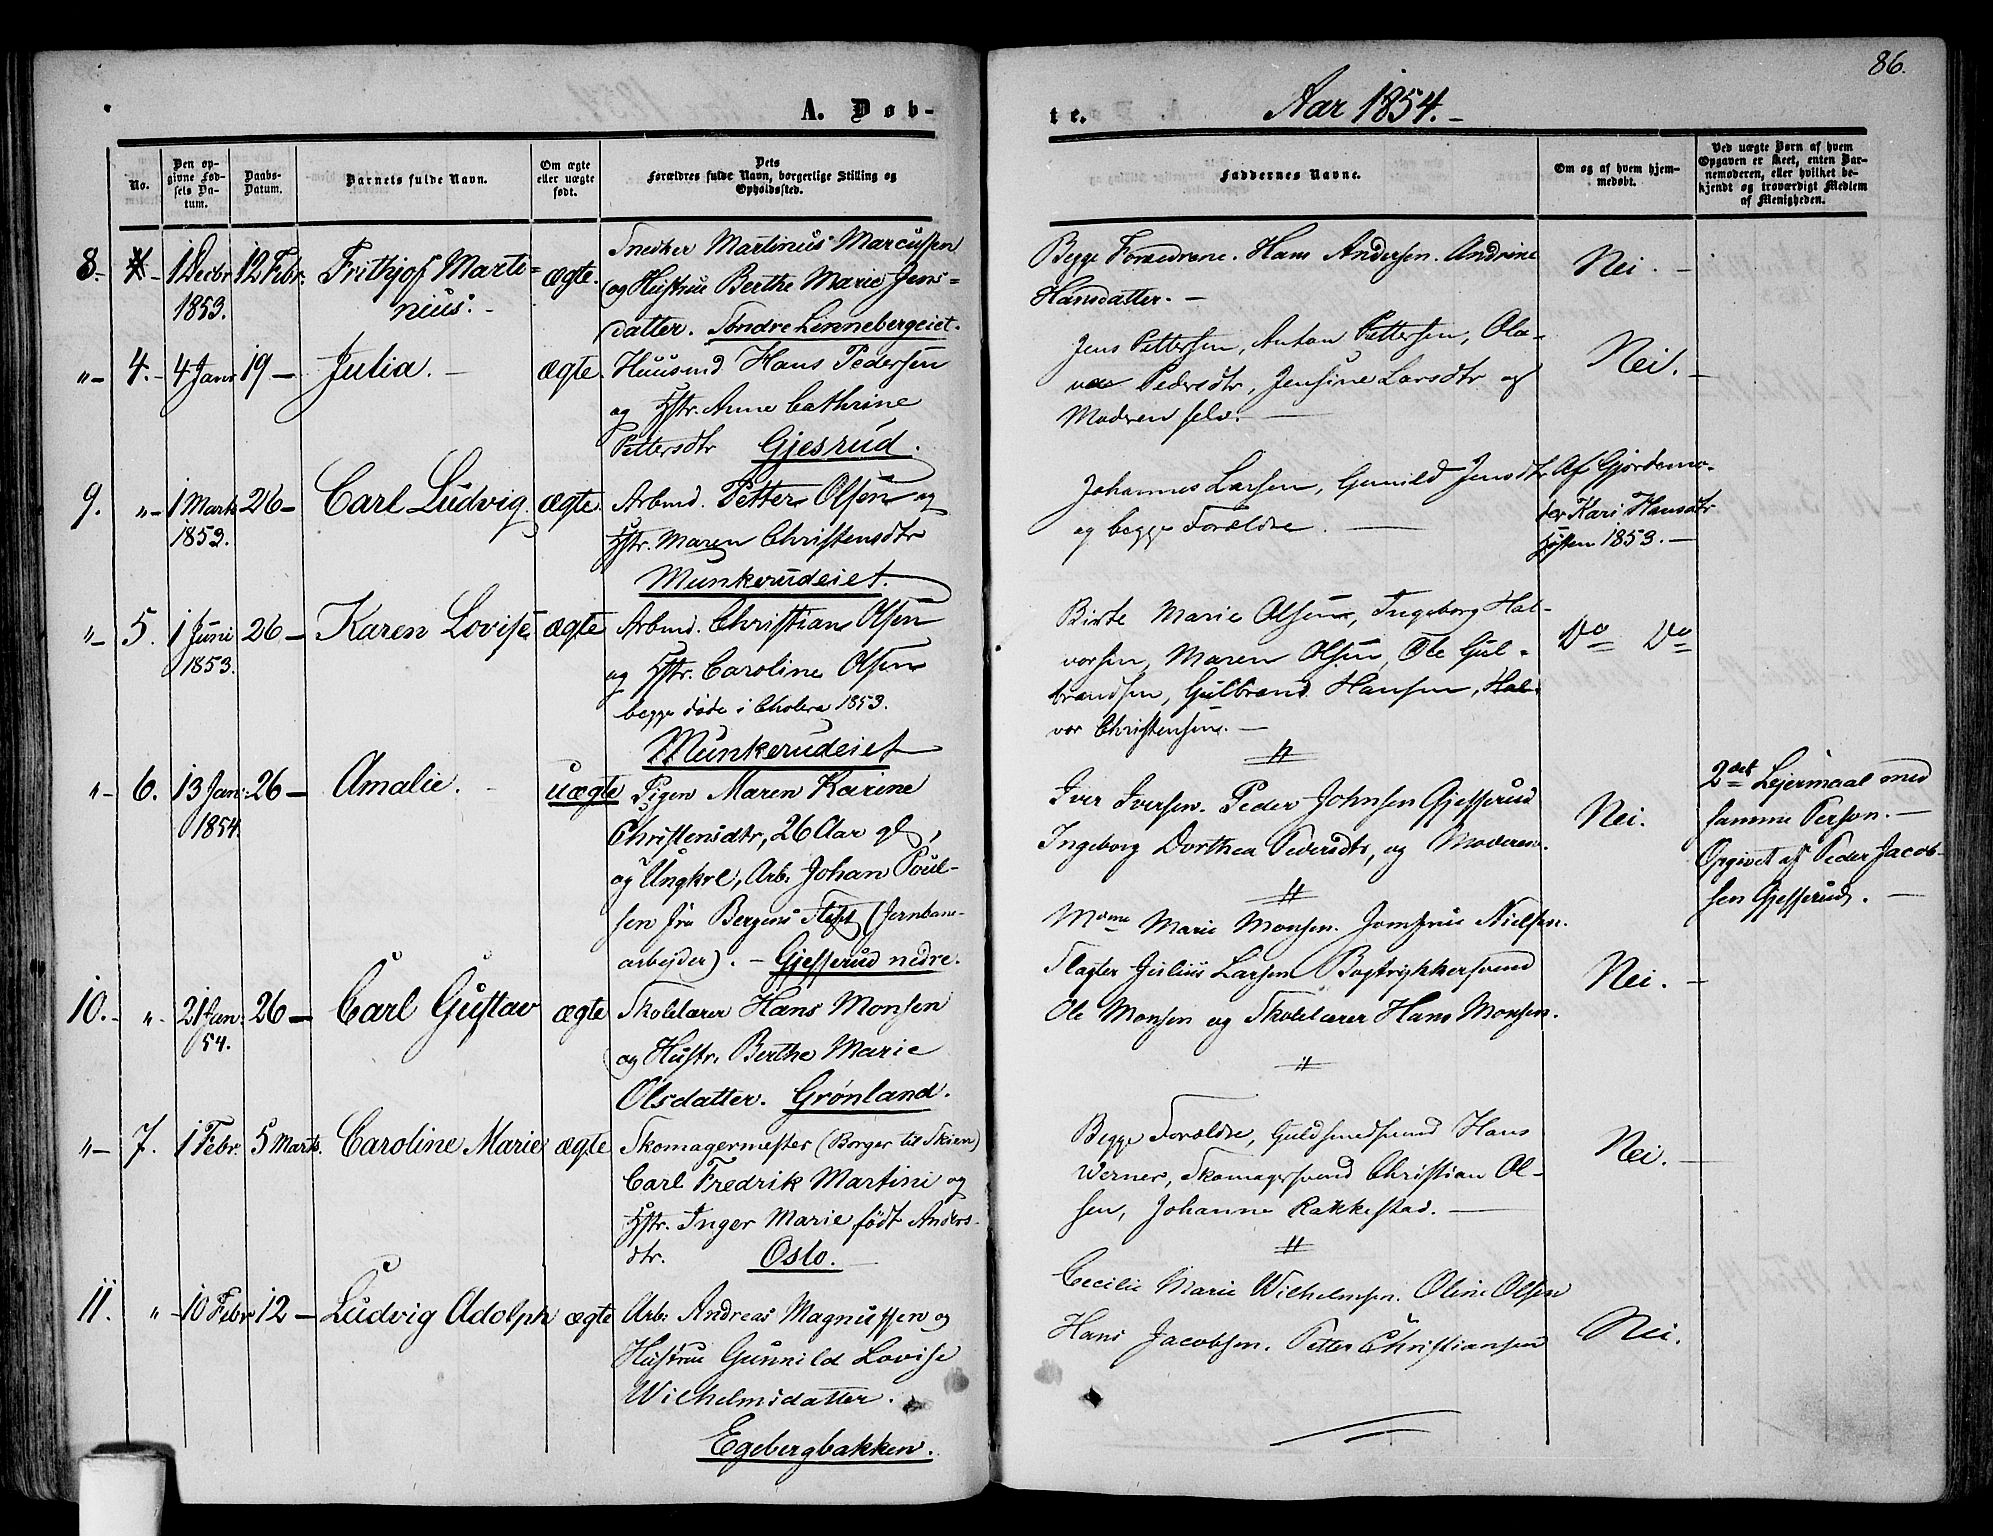 86.
A. Døb-
te.
Aar 1854.-
No.
Den op-
givne Fød-
sels Da-
tum.
Daabs-
Datum.
Barnets fulde Navn.
Om ægte
eller uægte
født.
Dets
Forældres fulde Navn, borgerlige Stilling og
Opholdssted.
Faddernes Navne.
Om og af hvem hjem-
medøbt.
Ved uægte Børn af hvem
Opgaven er skeet, enten Bar-
nemoderen, eller hvilket be-
kjendt og troværdigt Medlem
af Menigheden.
8. - 1 Decbr 12 Febr. Frithjof Marti- ægte.
1853. nius. -
Snedker Martinus Marcussen
og Hustrue Berthe Marie Jens-
datter. Søndre Linnebergeiet.
Begge Forældrene. Hans Andersen. Andrine
Hansdatter. -
Nei. -
" - 4. - 4 Janr 19 - Julia. - ægte.
Huusmd Hans Pedersen
og Hstr. Anne Cathrine
Pettersdtr Gjesrud.
Jens Pettersen, Anton Pettersen, Ola-
va Pedersdtr, Jensine Larsdtr og
Modren selv. -
Nei. -
9. " - 1 Marts 26 - Carl Ludvig. ægte.
1853.
Arbmd. Petter Olsen og
Hstr. Maren Christensdtr
Munkerudeiet.
Johannes Larsen, Gunild Jensdtr
og begge Forældre. -
Af Gjordemo-
der Kari Hansdtr
Høsten 1853. -
" - 5. 1 Juni 26 - Karen Lovise ægte
1853.
Arbmd. Christian Olsen
og Hstr. Caroline Olsen
begge døde i Cholera 1853.
Munkerudeiet
Birte Marie Olsen, Ingeborg Hal-
vorsen, Maren Olsen, Ole Gul-
brandsen, Gulbrand Hansen, Hal-
vor Christensen. -
"
Do Do
" - 6. 13 Jan. 26 - Amalie. - uægte
1854.
Pigen Maren Karine
Christensdtr, 26 Aar gl,
og Ungkrl, Arb: Johan Poul-
sen fra Bergens Stift (Jernbane-
arbejder). - Gjesserud nedre.
Iver Iversen. Peder Johnsen Gjesserud
Ingeborg Dorthea Pedersdtr, og Moderen.
"
Nei.
2det Lejermaal med
samme Person. -
Opgivet af Peder Jacob-
sen Gjesserud. -
10. - " - 21 Jan. 26 - Carl Gustav ægte
54.
Skolelærer Hans Monsen
og Hustr. Berthe Marie
Olsdatter. Grønland.
Mdme Marie Monsen. Jomfrue Nielsen.
Slagter Julius Larsen Bogtrykkersvend
Ole Monsen og Skolelærer Hans Monsen.
"
Nei. -
" - 7. 1 Febr. 5 Marts. Caroline Marie ægte
Skomagermester (Borger til Skien)
Carl Fredrik Martini og
Hstr. Inger Marie født Anders-
dtr. Oslo. -
Begge Forældre, Guldsmedsvend Hans
Werner, Skomagersvend Christian Ol-
sen, Johanne Rakkestad. -
"
Nei. -
11. " - 10 Febr 12 - Ludvig Adolph ægte
Arb: Andreas Magnussen og
Hustrue Gunnild Lovise
Wilhelmsdatter.
Egebergbakken.
Cecilie Marie Wilhelmsen. Oline Olsen
Hans Jacobsen. Petter Christiansen
Nei.